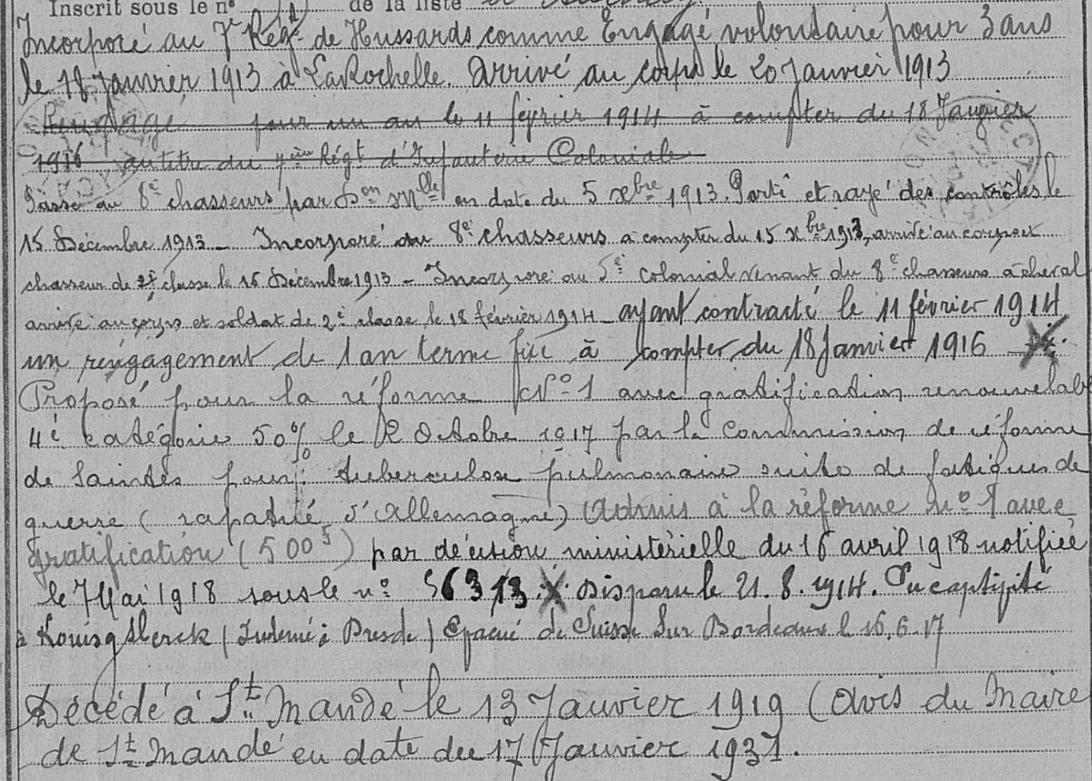 Inscrit sous le n° de la liste
Incorporé au 7e Régt de Hussards comme Engagé volontaire pour 3 ans
le 18 Janvier 1913 à LaRochelle. Arrivé au corps le 20 Janvier 1913
Rengagé pour un an le 11 février 1914 à compter du 18 Janvier
1916 au titre du Régt d'Infanterie Coloniale
Passé au 8e chasseurs par Don Mlle en date du 5 xbre 1913. Porti et rayé des contrôles le
15 Décembre 1913 - Incorporé au 8e chasseurs à compter du 15 xbre 1913, arrivé au corps et
chasseur de 2e classe le 16 Décembre 1913 - Incorporé au 5e colonial venant du 8e chasseurs à cheval
arrivé au corps et soldat de 2e classe le 18 février 1914 ayant contracté le 11 février 1914
un rengagement de 1 an terme fixé à compter du 18 Janvier 1916
Proposé pour la réforme N° 1 avec gratification renouvelab
4e catégorie 50% le 2 Octobre 1917 par la Commission de réforme
de Saintes pour: tuberculose pulmonaire suite de fatigues de
guerre (rapatrié d'Allemagne) Admis à la réforme n° 1 avec
gratification (500f) par décision ministérielle du 16 avril 1918 notifiée
le 7 Mai 1918 sous le n° 56313 X Disparu le 21.8.1914. En captivité
à (Interné à ) Evacué de Suisse sur Bordeaux l 16.6.17
Décédé à St Mandé le 13 Janvier 1919 (Avis du Maire
de St Mandé en date du 17 Janvier 1931.